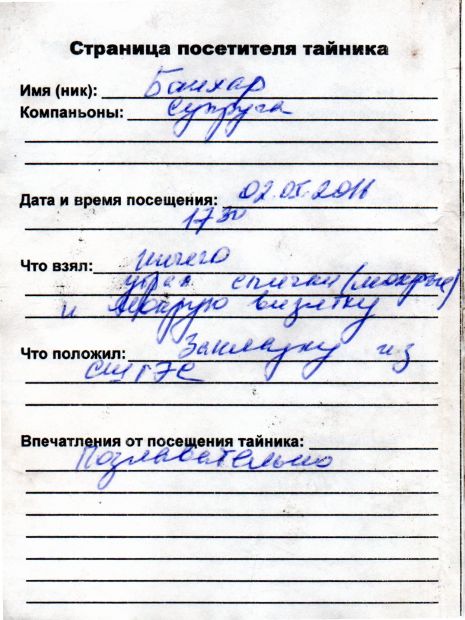 Страница посетителя тайника
Имя (ник): Баихар
Компаньоны: супруга
Дата и время посещения: 02.05.2011
17 30
Что взял: ничего
убрал спички (мокрые)
и мокрую визитку
Что положил: Закладку из
СШГЭС
Впечатления от посещения тайника:
Познавательно